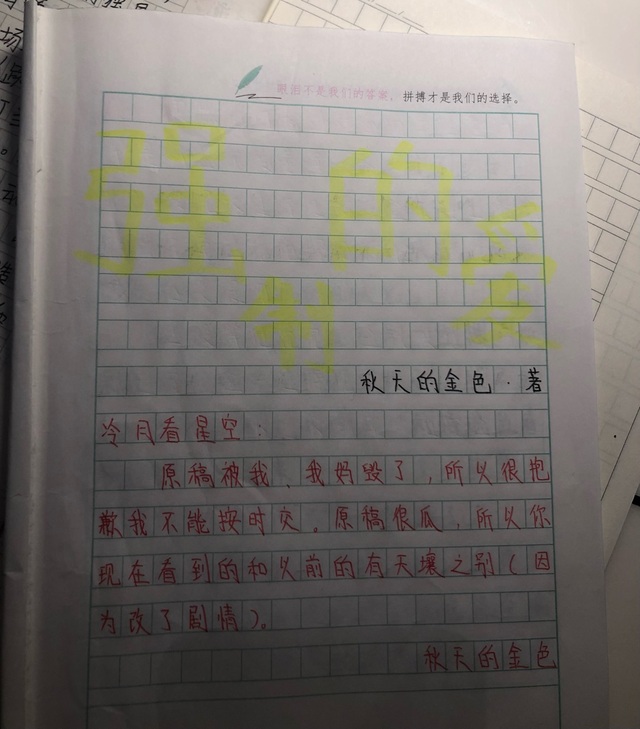 眼泪不是我们的答案，拼搏才是我们的选择。
强制的爱
秋天的金色·著
冷月看星空：
原稿被我、我妈毁了，所以很抱
歉我不能按时交。原稿很瓜，所以你
现在看到的和以前的有天壤之别（因
为改了剧情）。
秋天的金色